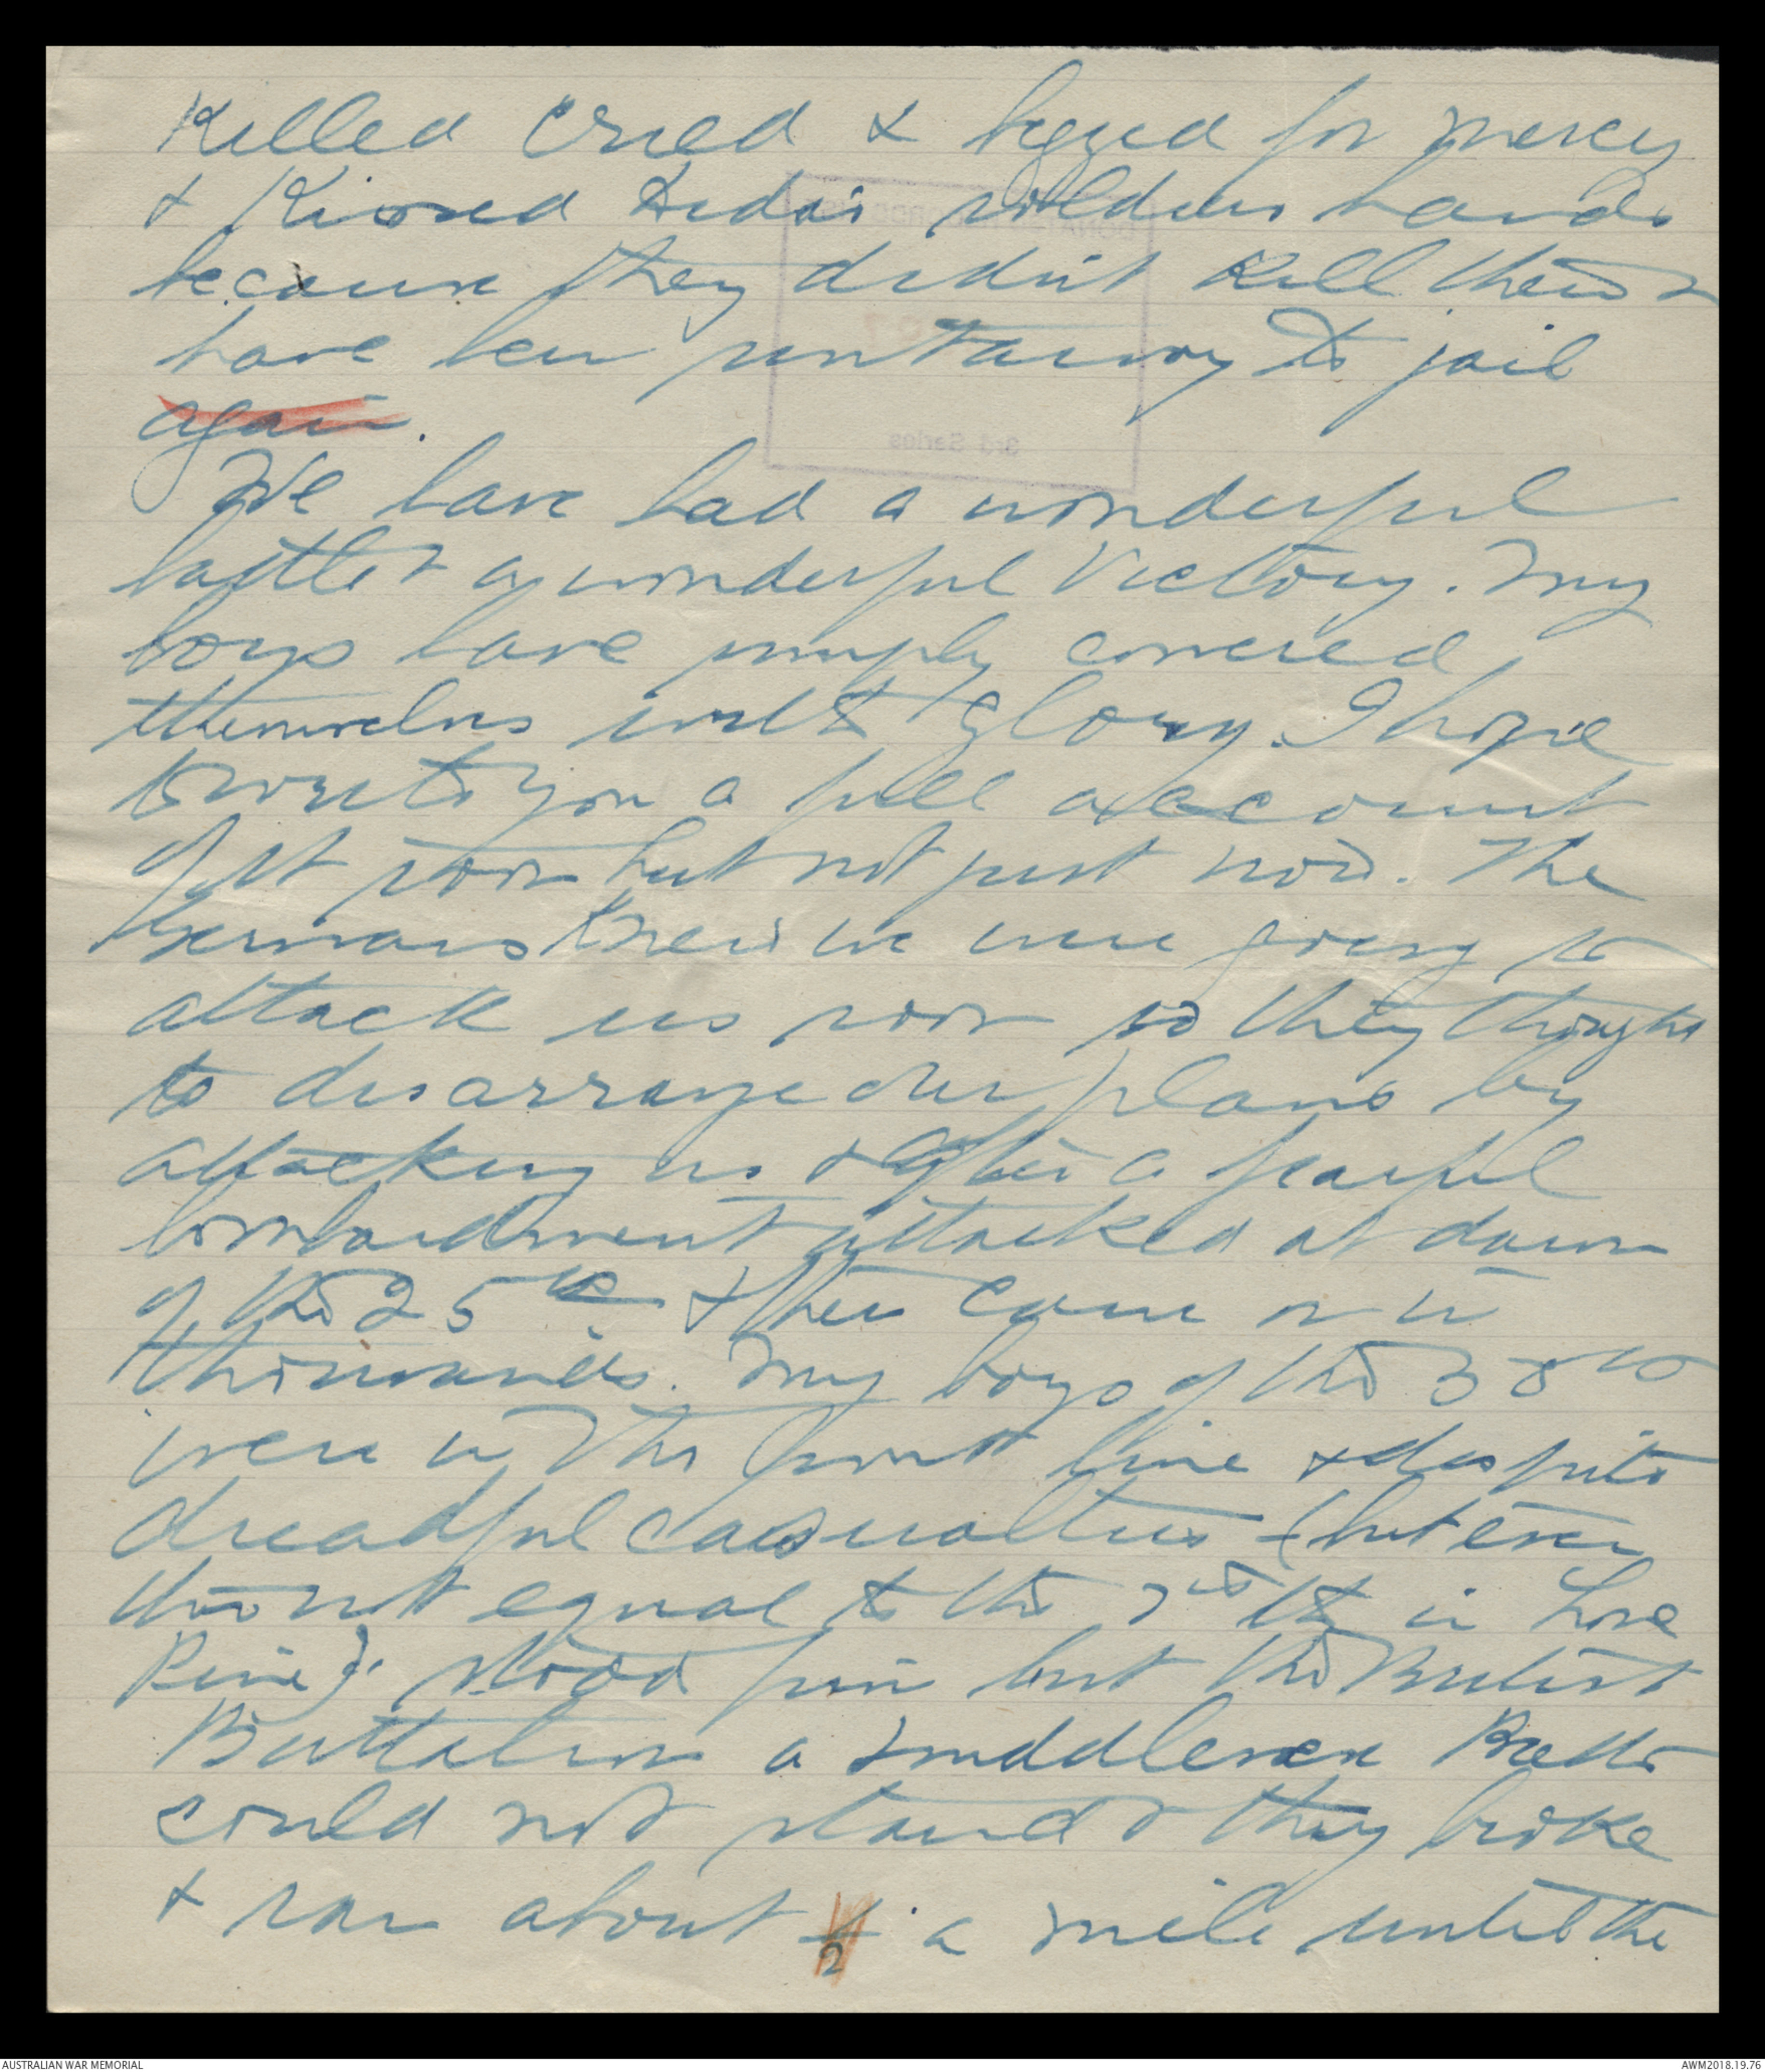 Killed cried & begged for mercy
& Kissed Indai soldiers hands
because they didn't kill them &
have been sent away to jail
again.
We have had a wonderful
battle & a wonderful Victory. My
boys have simply covered
themselves with glory. I hope
to write you a full account
of it soon but not just now. The
Germans knew we were going to
attack us soon so they thought
to disarrange our plans by
attacking us & after a fearful
bombardment attacked at dawn
of the 25th & then came on in
thousands. My boys of the 38th
were in the front line & despite
dreadful casualties (but even
then not equal to the 7th in Lone
Pine) stood firm but the British
Battalion a Middlesex Battn
could not stand & they broke
& ran about ½ a mile until the
DONATED
3rd Series
AUSTRALIAN WAR MEMORIAL
AWM2018.19.76